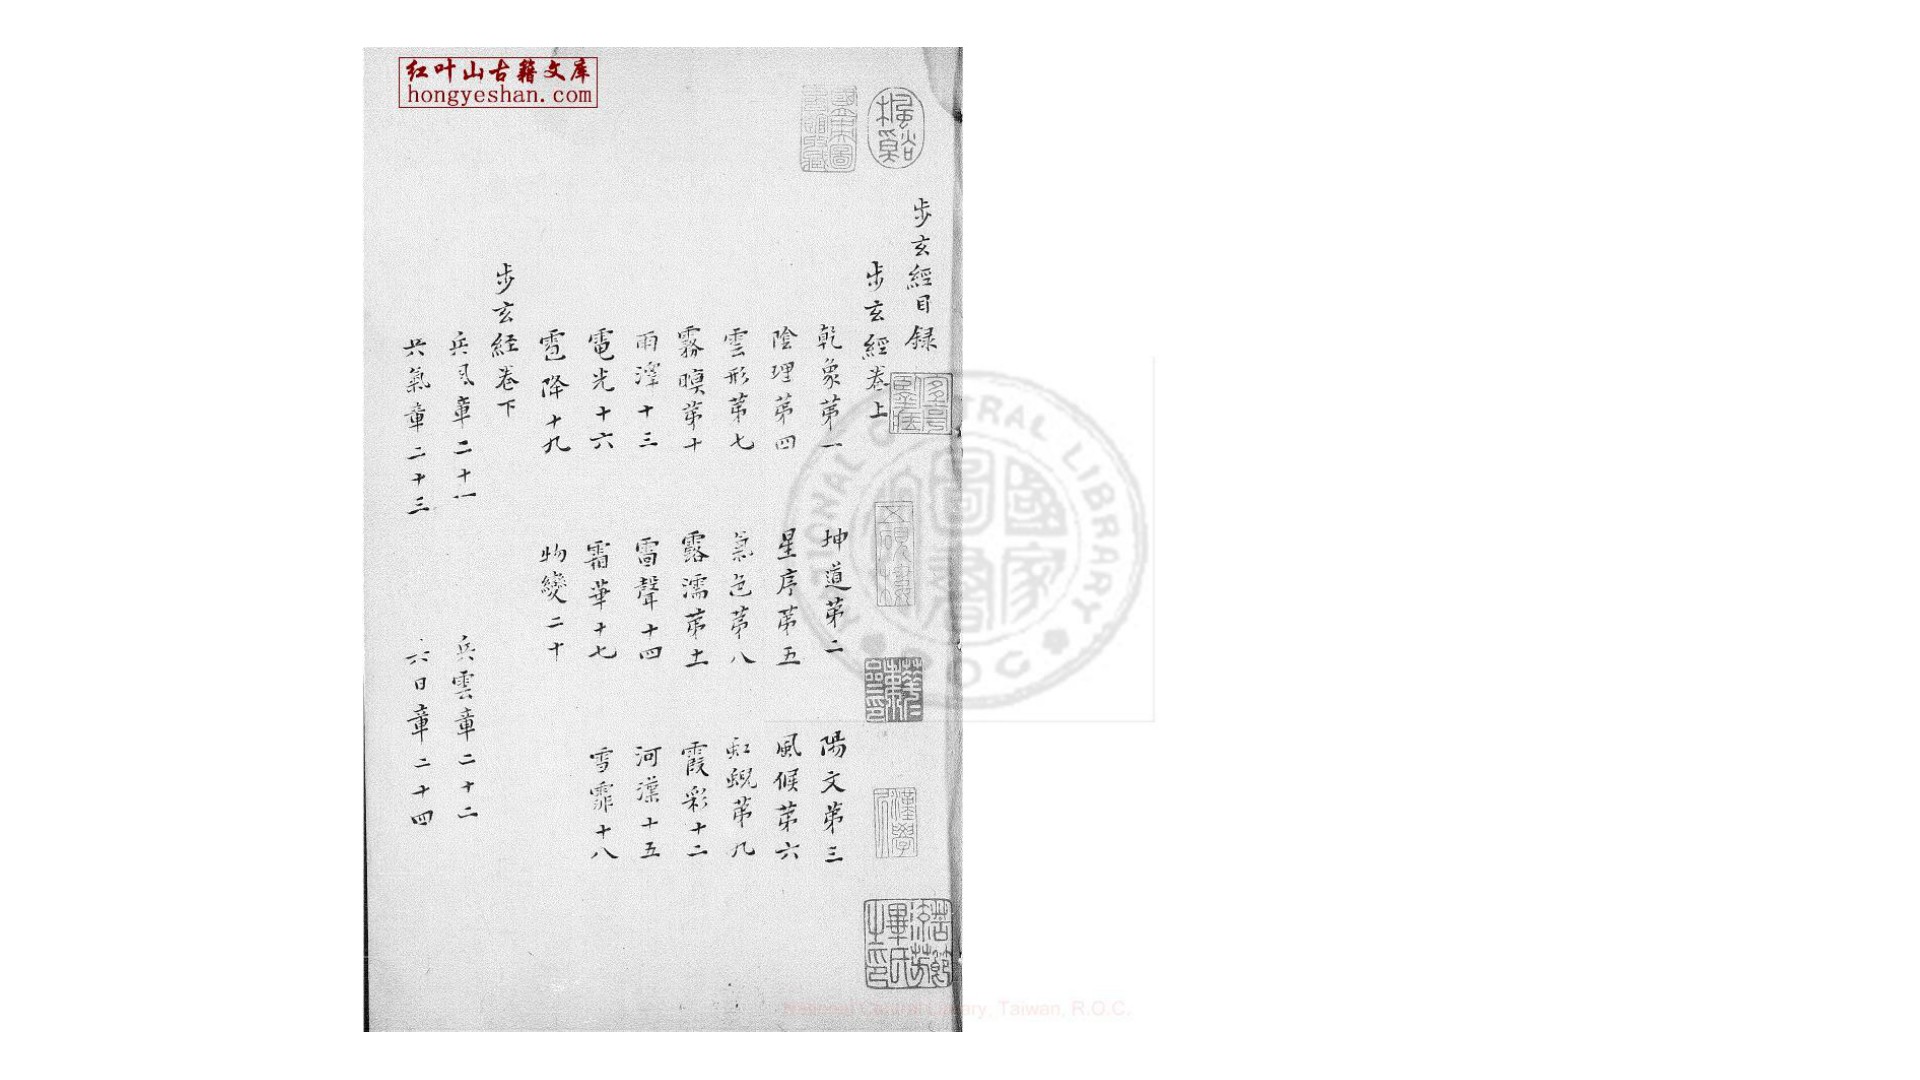 红叶山古籍文库
hongyeshan.com
步玄經目録
步玄經卷上
乾象第一 坤道第二 陽文第三
陰理第四 星序第五 風候第六
雲形第七 氣色第八 虹蜺第九
霧暝第十 露濡第十一 霞彩十二
雨澤十三 雷聲十四 河漢十五
電光十六 霜華十七 雪霏十八
雹降十九 物變二十
步玄経卷下
兵風章二十一 兵雲章二十二
兵氣章二十三 六日章二十四
國家圖書
NATIONAL CENTRAL LIBRARY, R.O.C.
National Central Library, Taiwan, R.O.C.